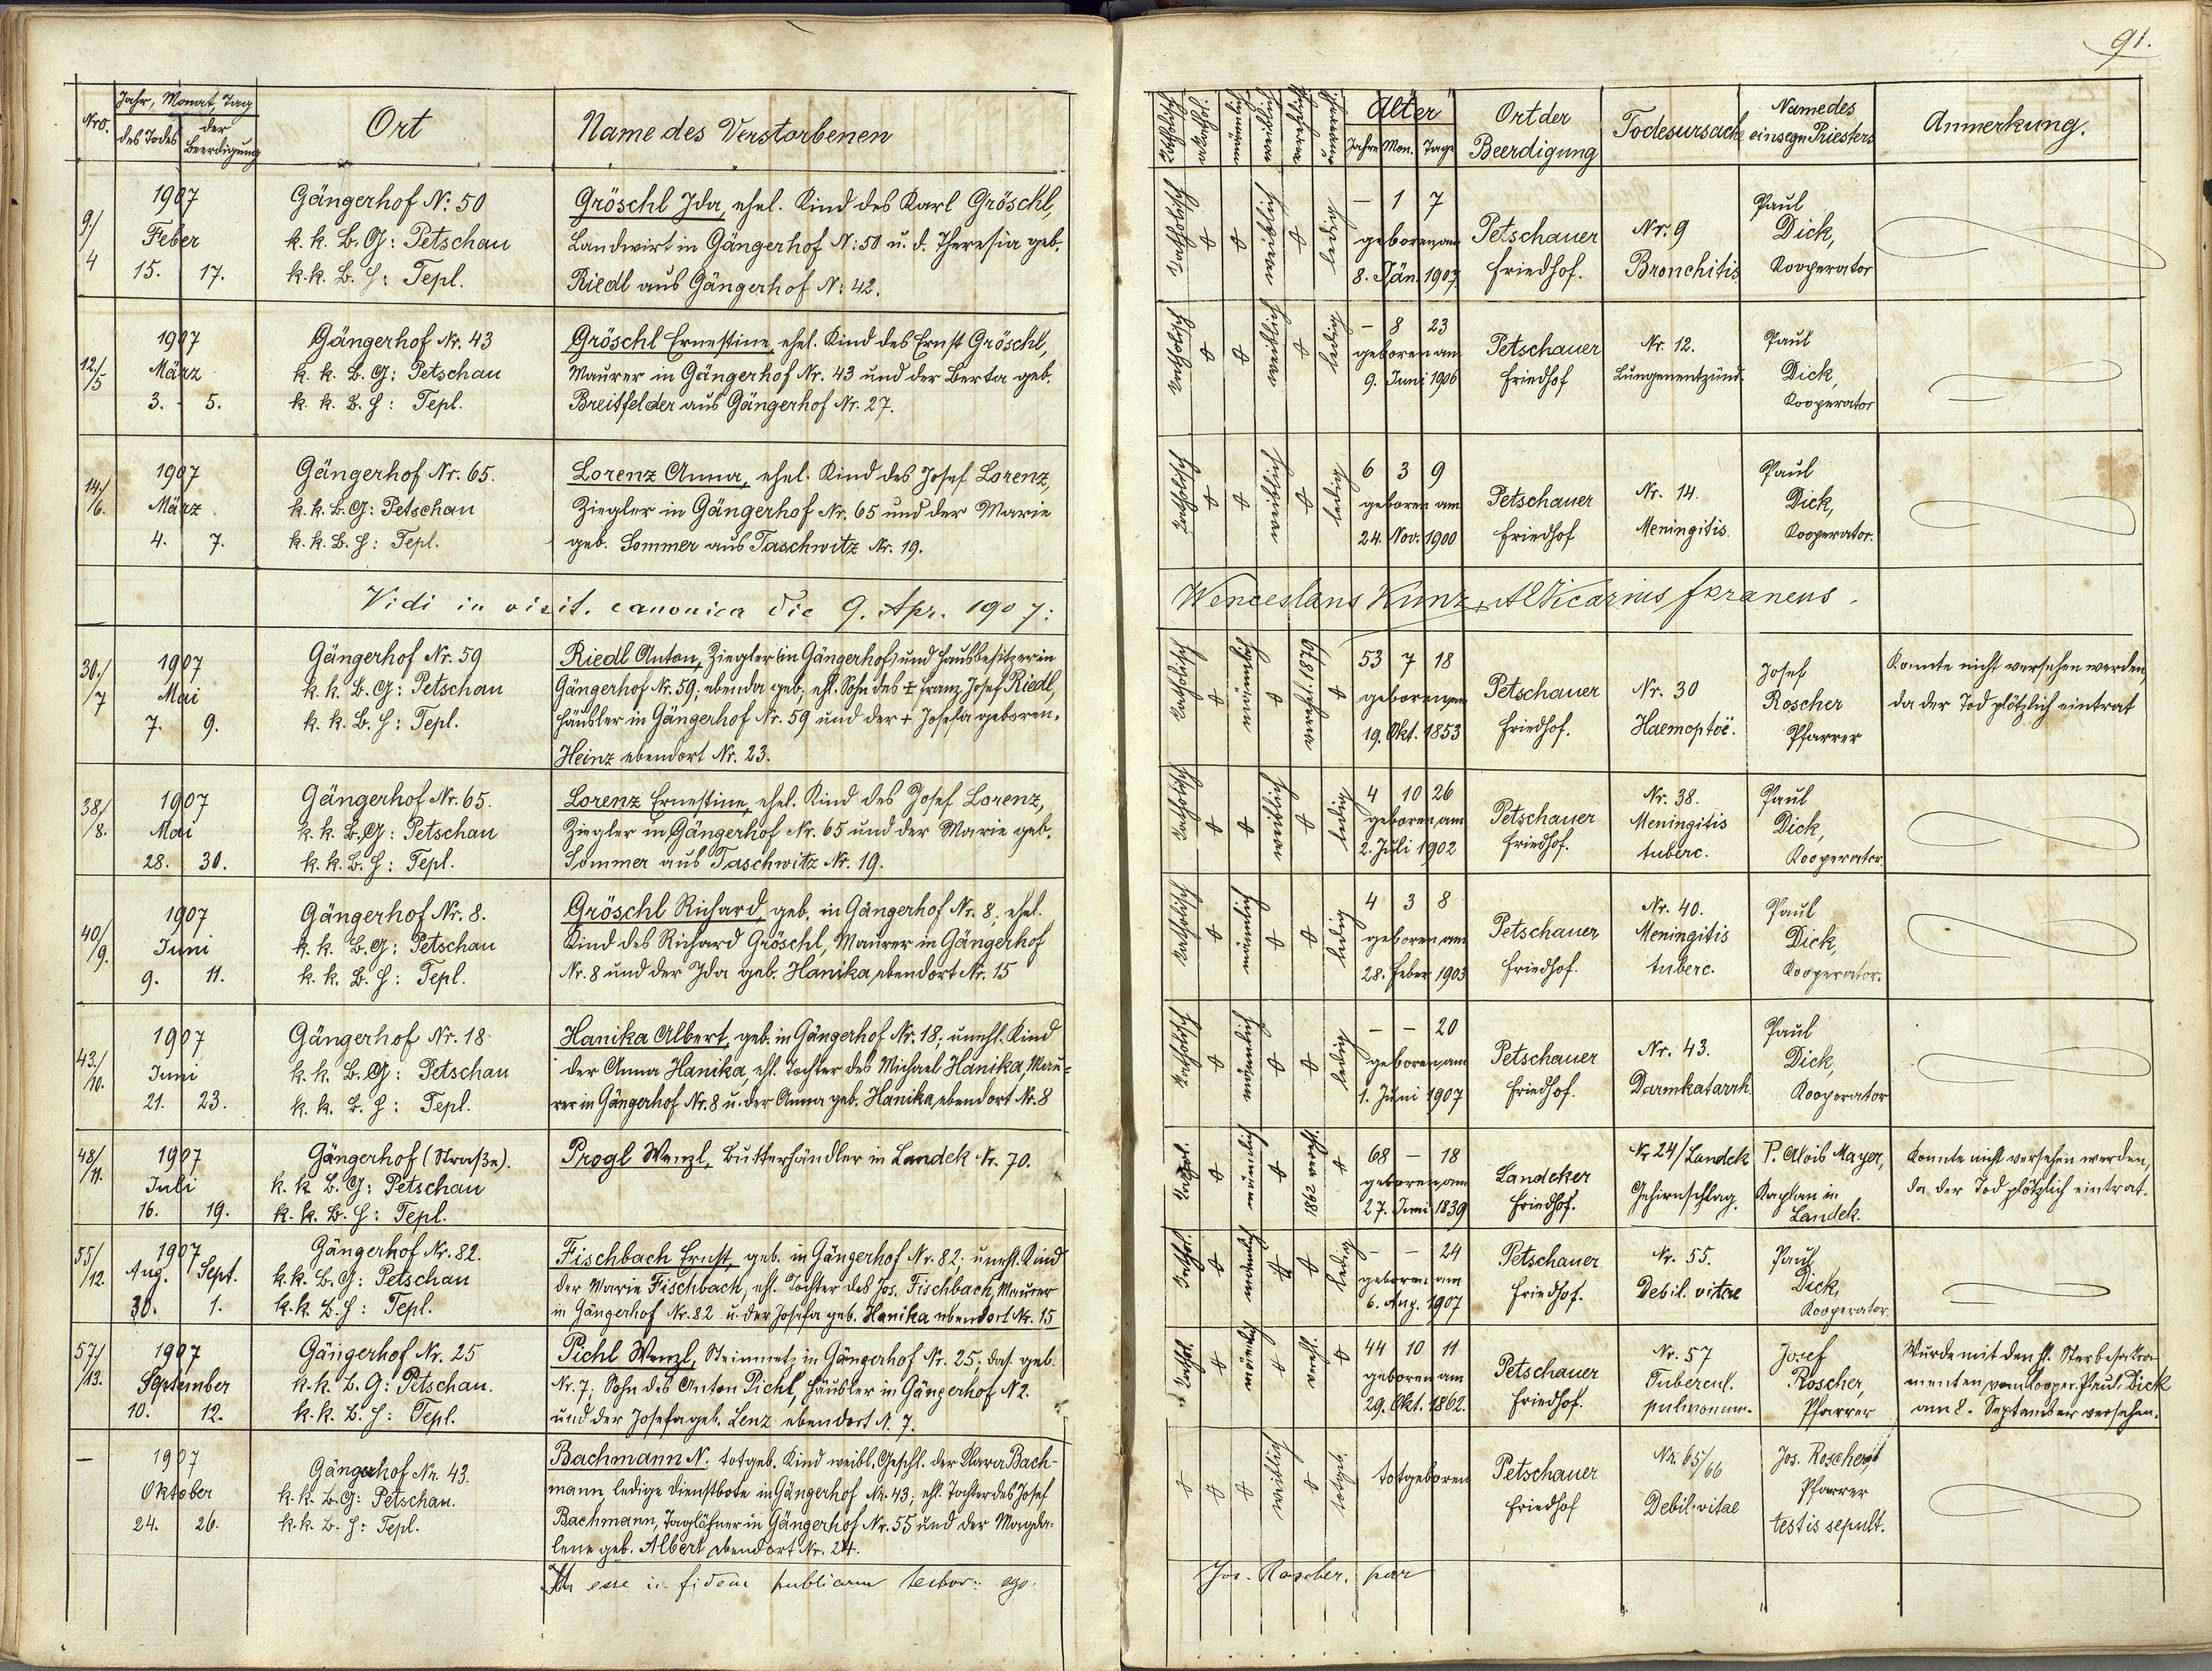 91.
Nro.
Jahr, Monat, Tag
des Todes
der Beerdigung
Ort
Name des Verstorbenen
Katholisch
akathol.
männlich
weiblich
verehlicht
unvereh.
Alter
Jahre Mon. Tage
Ort der
Beerdigung
Todesursache
Name des
einsegn Priesters
Anmerkung.
9./4
1907
Feber
15. 17.
Gängerhof N: 50
k. k. B. G: Petschau
k. k. B. H: Tepl.
Gröschl Ida, ehel. Kind des Karl Gröschl,
Landwirt in Gängerhof N: 50 u. d. Theresia geb.
Riedl aus Gängerhof N: 42.
Katholisch
weiblich
ledig
– 1 7
geboren am
8. Jän. 1907
Petschauer
Friedhof.
Nr. 9
Bronchitis
Paul
Dick,
Kooperator
12./5
1907
März
3. 5.
Gängerhof Nr. 43
k. k. B. G: Petschau
k. k. B. H: Tepl.
Gröschl Ernestine, ehel. Kind des Ernst Gröschl,
Maurer in Gängerhof Nr. 43 und der Berta geb.
Breitfelder aus Gängerhof Nr. 27.
Katholisch
weiblich
ledig
– 8 23
geboren am
9. Juni 1906
Petschauer
Friedhof
Nr. 12.
Lungenentzünd.
Paul
Dick,
Kooperator
14./6.
1907
März
4. 7.
Gängerhof Nr. 65.
k. k. B. G: Petschau
k. k. B. H: Tepl.
Lorenz Anna, ehel. Kind des Josef Lorenz,
Ziegler in Gängerhof Nr. 65 und der Marie
geb. Sommer aus Taschwitz Nr. 19.
Katholisch
weiblich
ledig
6 3 9
geboren am
24. Nov. 1900
Petschauer
Friedhof
Nr. 14.
Meningitis.
Paul
Dick,
Kooperator.
Vidi in visit. canonica die 9. Apr. 1907:
Wenceslaus Kunz, Vicarius foraneus.
30./7
1907
Mai
7. 9.
Gängerhof Nr. 59
k. k. B. G: Petschau
k. k. B. H: Tepl.
Riedl Anton, Ziegler (in Gängerhof) und Hausbesitzer in
Gängerhof Nr. 59; ebenda geb. ehl. Sohn des + Franz Josef Riedl,
Häusler in Gängerhof Nr. 59 und der + Josefa geboren.
Heinz ebendort Nr. 23.
Katholisch
männlich
verehel. 1879
53 7 18
geboren am
19. Okt. 1853
Petschauer
Friedhof.
Nr. 30
Haemoptoë.
Josef
Roscher
Pfarrer
Konnte nicht versehen werden,
da der Tod plötzlich eintrat
38./8.
1907
Mai
28. 30.
Gängerhof Nr. 65.
k. k. B. G: Petschau
k. k. B. H: Tepl.
Lorenz Ernestine, ehel. Kind des Josef Lorenz,
Ziegler in Gängerhof Nr. 65 und der Marie geb.
Sommer aus Taschwitz Nr. 19.
Katholisch
weiblich
ledig
4 10 26
geboren am
2. Juli 1902
Petschauer
Friedhof.
Nr. 38.
Meningitis
tuberc.
Paul
Dick,
Kooperator.
40/9.
1907
Juni
9. 11.
Gängerhof Nr. 8.
k. k. B. G: Petschau
k. k. B. H: Tepl.
Gröschl Richard, geb. in Gängerhof Nr. 8; ehel.
Kind des Richard Gröschl, Maurer in Gängerhof
Nr. 8 und der Ida geb. Hanika, ebendort Nr. 15
Katholisch
männlich
ledig
4 3 8
geboren am
28. Feber 1903
Petschauer
Friedhof.
Nr. 40.
Meningitis
tuberc.
Paul
Dick,
Kooperator.
43./10.
1907
Juni
21. 23.
Gängerhof Nr. 18
k. k. B. G: Petschau
k. k. B. H: Tepl.
Hanika Albert, geb. in Gängerhof Nr. 18; unehl. Kind
der Anna Hanika, ehl. Tochter des Michael Hanika, Mau-
rer in Gängerhof Nr. 8 u. der Anna geb. Hanika, ebendort Nr. 8
Katholisch
männlich
ledig
– – 20
geboren am
1. Juni 1907
Petschauer
Friedhof.
Nr. 43.
Darmkatarrh.
Paul
Dick,
Kooperator
48/11.
1907
Juli
16. 19.
Gängerhof (Straße).
k. k. B. G: Petschau
k. k. B. H: Tepl.
Progl Wenzl, Butterhändler in Landek Nr. 70.
Kathol.
männlich
1862 verehl.
68 – 18
geboren am
27. Juni 1839
Landeker
Friedhof.
Nr 24/Landek
Gehirnschlag.
P. Alois Mayer,
Kaplan in
Landek.
Konnte nicht versehen werden,
da der Tod plötzlich eintrat.
55/12.
1907
Aug. Sept.
30. 1.
Gängerhof Nr. 82.
k. k. B. G: Petschau
k. k. B. H: Tepl.
Fischbach Ernst, geb. in Gängerhof Nr. 82; unehl. Kind
der Marie Fischbach, ehl. Tochter des Jos. Fischbach, Maurer
in Gängerhof Nr. 82 u. der Josefa geb. Hanika ebendort Nr. 15
Kathol.
männlich
ledig
– – 24
geboren am
6. Aug. 1907
Petschauer
Friedhof.
Nr. 55.
Debil. vitae
Paul
Dick,
Kooperator.
57/13.
1907
September
10. 12.
Gängerhof Nr. 25
k. k. B. G: Petschau.
k. k. B. H: Tepl.
Pichl Wenzl, Steinmetz in Gängerhof Nr. 25; das. geb.
Nr. 7; Sohn des Anton Pichl, Häusler in Gängerhof N2.
und der Josefa geb. Lenz ebendort N. 7.
Kathol.
männlich
verehl.
44 10 11
geboren am
29. Okt. 1862.
Petschauer
Friedhof.
Nr. 57
Tubercul.
pulmonum.
Josef
Roscher,
Pfarrer
Wurde mit den hl. Sterbesakra-
menten vom Kooper. Paul Dick
am 8. September versehen.
–
1907
Oktober
24. 26.
Gängerhof Nr. 43.
k. k. B. G: Petschau.
k. k. B. H: Tepl.
Bachmann N. totgeb. Kind weibl. Geschl. der Klara Bach-
mann, ledige Dienstbote in Gängerhof Nr. 43; ehl. Tochter des Josef
Bachmann, Taglöhner in Gängerhof Nr. 55 und der Magda-
lene geb. Albert ebendort Nr. 24.
weiblich
totgeb.
totgeboren
Petschauer
Friedhof
Nr. 65/66
Debil. vitae
Jos. Roscher,
Pfarrer
testis sepult.
esse in fidem publicam testor: ego
Jos. Roscher, par